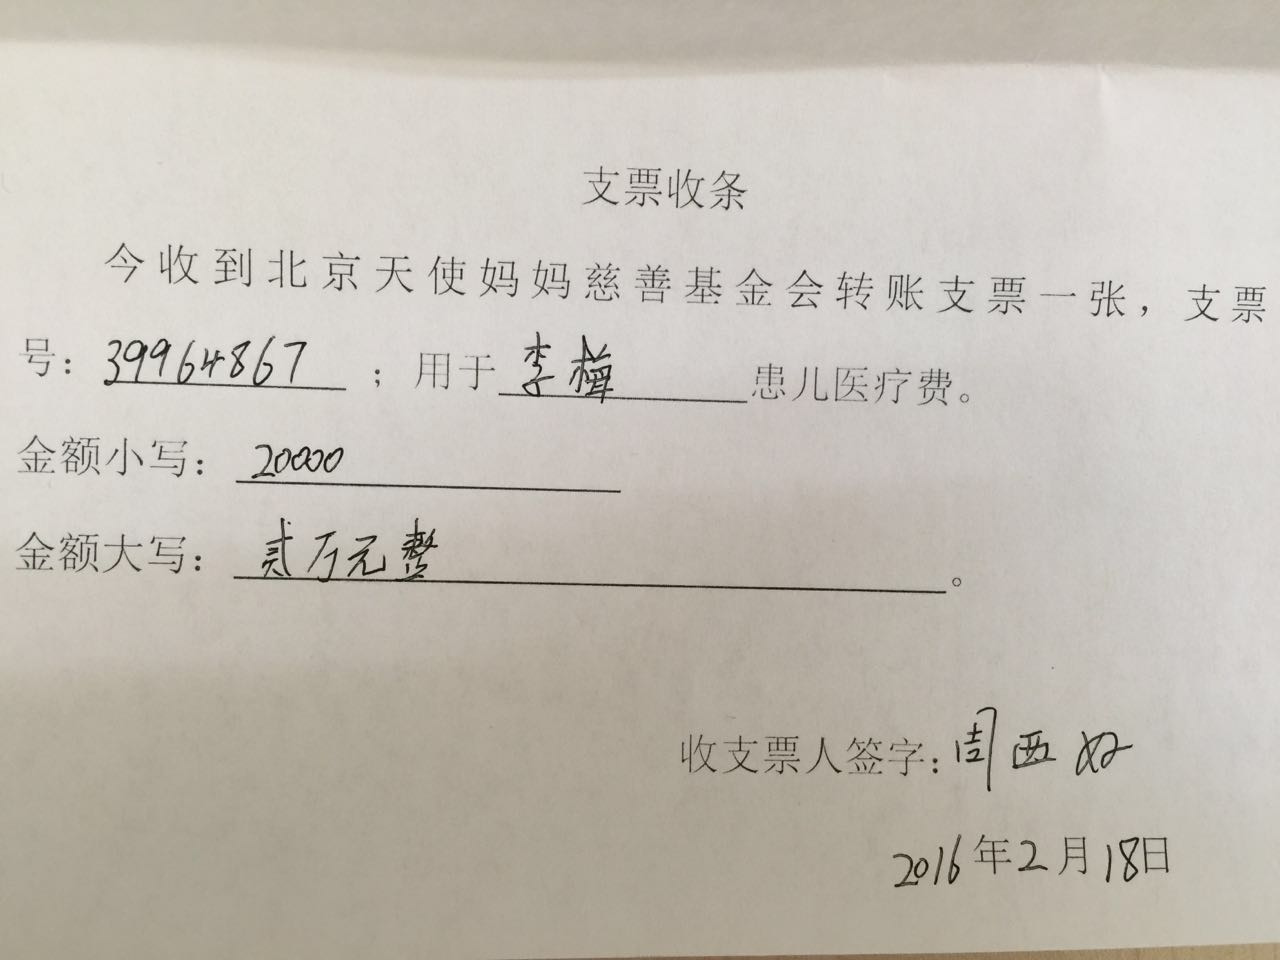 支票收条
今收到北京天使妈妈慈善基金会转账支票一张，支票
号：39964867；用于李梅患儿医疗费。
金额小写：20000
金额大写：贰万元整。
收支票人签字：周西好
2016年2月18日